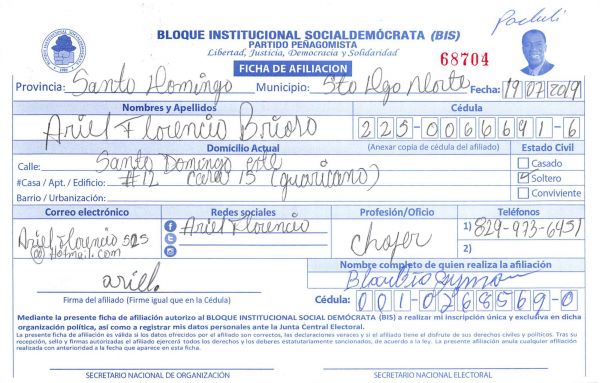 BLOQUE INSTITUCIONAL SOCIALDEMÓCRATA (BIS)
PARTIDO PEÑAGOMISTA
Libertad, Justicia, Democracia y Solidaridad
FICHA DE AFILIACION
68704
Provincia: Santo Domingo Municipio: Sto Dgo Norte Fecha: 19 07 2019
Nombres y Apellidos Cédula
Ariel Florencio Brioso 225-0066691-6
Domicilio Actual (Anexar copia de cédula del afiliado) Estado Civil
Calle: Santo Domingo este Casado
#Casa / Apt. / Edificio: #12 15 (guaricano) Soltero
Barrio / Urbanización: Conviviente
Correo electrónico Redes sociales Profesión/Oficio Teléfonos
Ariel Florencio 525 Ariel Florencio chofer 1) 829-973-6451
@Hotmail.com 2)
Nombre completo de quien realiza la afiliación
ariel.
Firma del afiliado (Firme igual que en la Cédula) Cédula: 001-0268569-0
Mediante la presente ficha de afiliación autorizo al BLOQUE INSTITUCIONAL SOCIAL DEMÓCRATA (BIS) a realizar mi inscripción única y exclusiva en dicha
organización política, así como a registrar mis datos personales ante la Junta Central Electoral.
La presente ficha de afiliación es válida si los datos ofrecidos por el afiliado son correctos, las declaraciones veraces y si el afiliado tiene el disfrute de sus derechos civiles y políticos. Tras su
recepción, sello y firmas autorizadas el afiliado ejercerá todos los derechos y los deberes estatutariamente sancionados, de acuerdo a la ley. La presente afiliación anula cualquier afiliación
realizada con anterioridad a la fecha que aparece en esta ficha.
SECRETARIO NACIONAL DE ORGANIZACIÓN SECRETARIO NACIONAL ELECTORAL